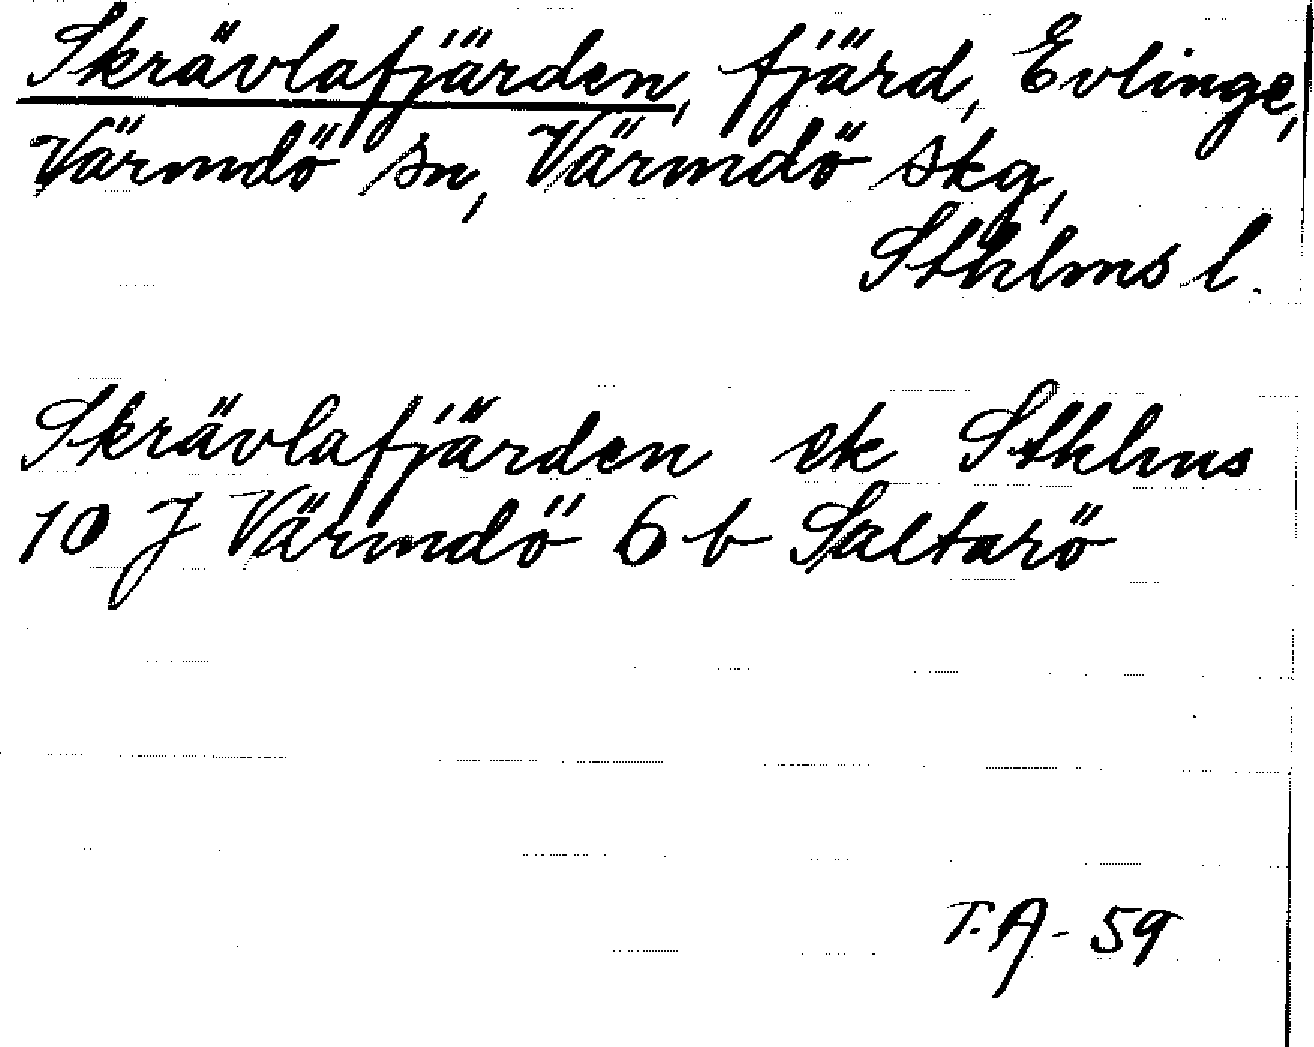 Skrävlafjärden, fjärd, Evlinge,
Värmdö sn, Värmdö skg,
Sthlms l.
Skrävlafjärden ek Sthlms
10 J Värmdö 6 b Saltarö
T.A - 59